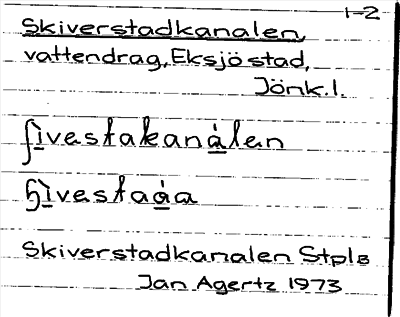 1-2
Skiverstadkanalen,
vattendrag, Eksjö stad,
Jönk.l.
ʃì̲vestakaná̲len
ɧì̲vestaá̲a
Skiverstadkanalen Stpls
Jan Agertz 1973